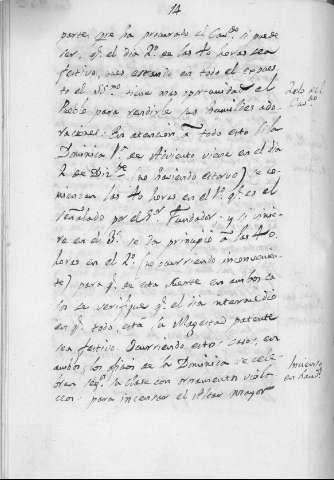 14
parte, que ha procurado el Cav.do si puede
ser, q.e el dia 2.o de las 40 horas sea
festivo, pues estando en todo el expues
to el SS.mo tiene mas oportunidad el
Pueblo para rendirle sus humildes ado
raciones. En atencion à todo esto si la
Dominica 1.a de Adviento viene en el dia
2 de Diz.re (no haviendo estorvo) se co
mienzan las 40 horas en el 1.o q.e es el
señalado por el S.or Fundador: y si vinie
re en el 3.o se da principio à las 40
horas en el 2.o (no ocurriendo inconvenien
te) para q.e de esta suerte en ambos ca
sos se verifique q.e el dia intermedio
en q.e todo está la Magestad patente
sea festivo. Ocurriendo esto caso, en
ambos los oficios de la Dominica se cele
bran seg.n la clase con ornamentos viola
ceos: para incensar el Altar mayor
Zelo del
Cav.do
Incienso